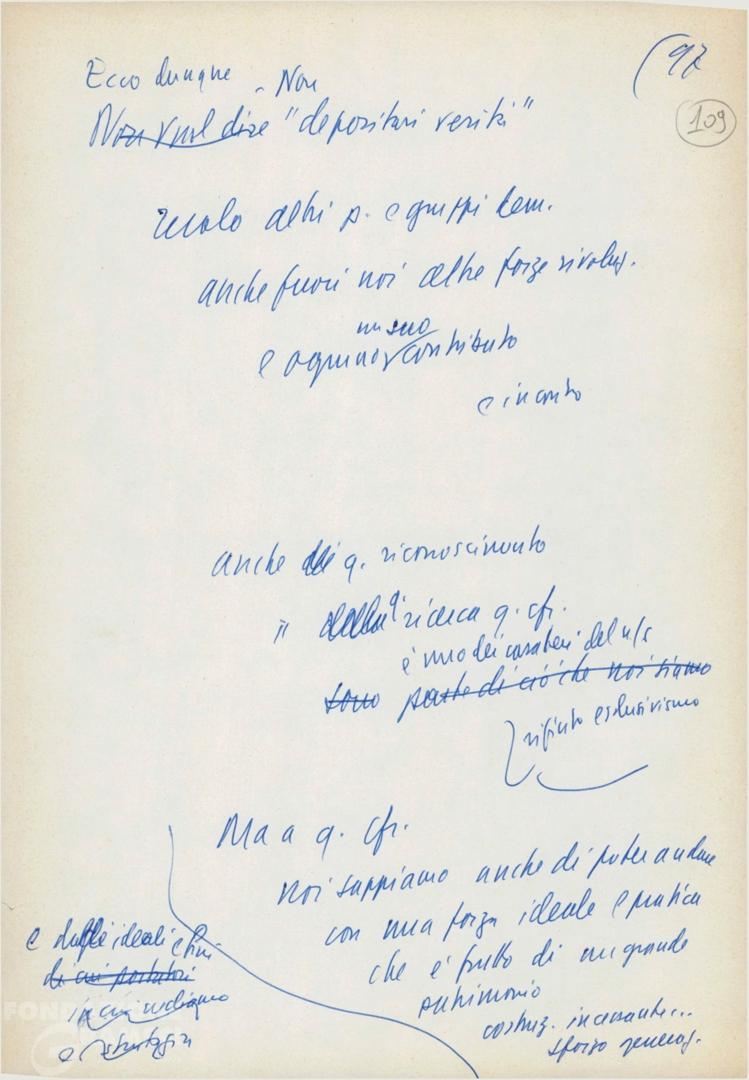 (97
109
Ecco dunque - Non
Non vuol dire "depositari verità"
ruolo altri p. e gruppi dem.
anche fuori noi altre forze rivoluz.
un suo
e ognuno contributo
e incontro
anche di q. riconoscimento
" della ricerca q. cfr.
è uno dei caratteri del n/s
sono parte di ciò che noi siamo
rifiuto esclusivismo
Ma a q. cfr.
noi sappiamo anche di poter andare
con una forza ideale e pratica
che è frutto di un grande
patrimonio
costruz. incessante...
sforzo generaz.
e dagli ideali e fini
di cui portatori
in cui crediamo
e strategia
FOND